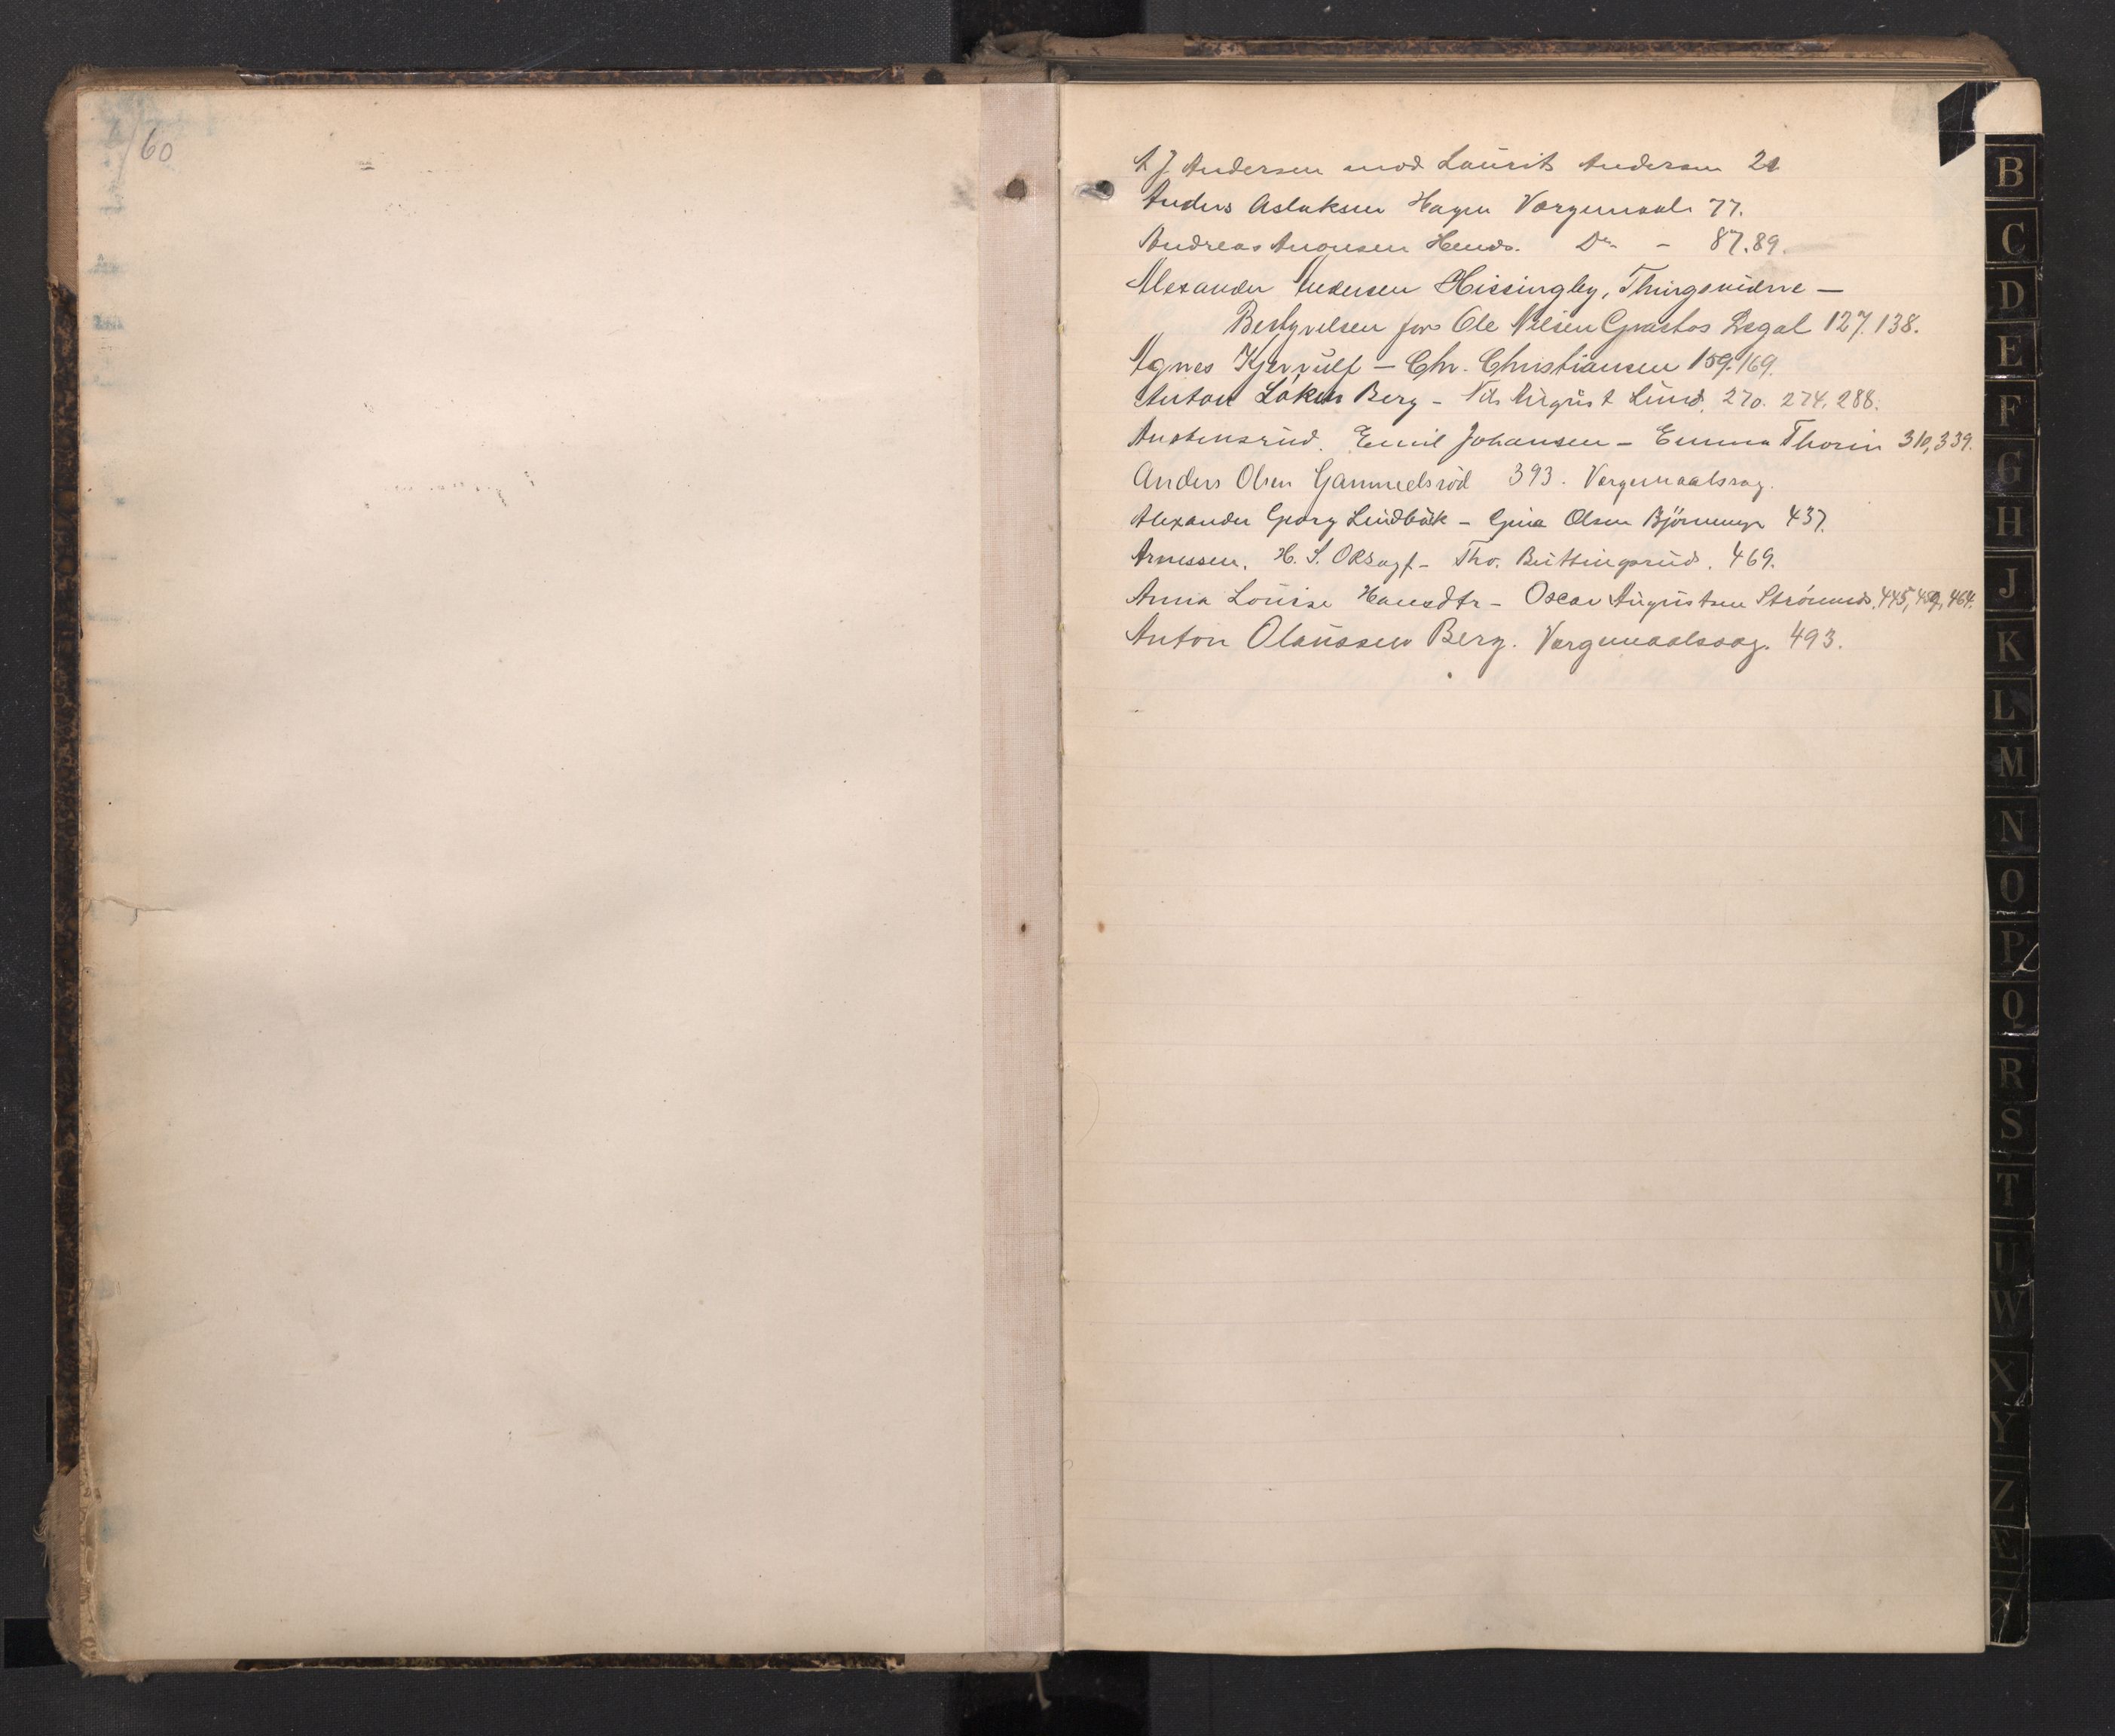 60
A J Andersen mod Laurits Andersen 21
Anders Aslaksen Hagen Værgemaal 77.
Andreas Aronsen Do - 87.89.
Alexander Andersen Hissingby, Thingsvidne —
Bestyrelsen for Ole Nilsen Graatos Legat 127. 138.
Agnes Kjerrulf — Chr. Christiansen 159. 169.
Anton Løken Berg - Nils August Lund. 270. 274. 288.
Austensrud. Emil Johansen — Emma Thorin 310, 339.
Anders Olsen Gammelsröd 393. Værgemaalssag.
Alexander Georg Lindbäck - Gina Olsen Björnemyr 437.
Arnessen, H. S. ORSagf - Tho. Buttingsrud. 469.
Anna Louise Hansdtr - Oscar Augustsen 445, 459, 464.
Anton Olaussen Berg.Værgemaalssag. 493.
B
C
D
E
F
G
H
J
K
L
M
N
O
P
Q
R
S
T
U
W
X
Y
Z
Æ
Ø